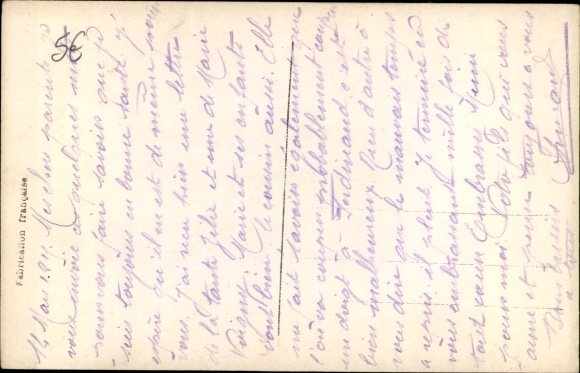 5€
Fabrication française
12 Mars 1919. Mes chers parents je
vous envoie ces quelques mots
pour vous faire savoir que je
suis toujours en bonne santé j'
espère qu'il en est de même pour
vous. J'ai reçu hier une lettre
de la tante Zélie et une de Marie
Marie et ses enfants
vont bien le cousin aussi. Elle
me fait savoir également que
l'on va couper probablement
un doigt à Ferdinand c'est
bien malheureux. Rien d'autre à
vous dire que le mauvais temps
a repris il pleut. Je termine en
vous embrassant mille fois de
tout cœur. Embrassez
pour moi. Votre fils que vous
aime et pense toujours à vous
Bons baisers
à tous